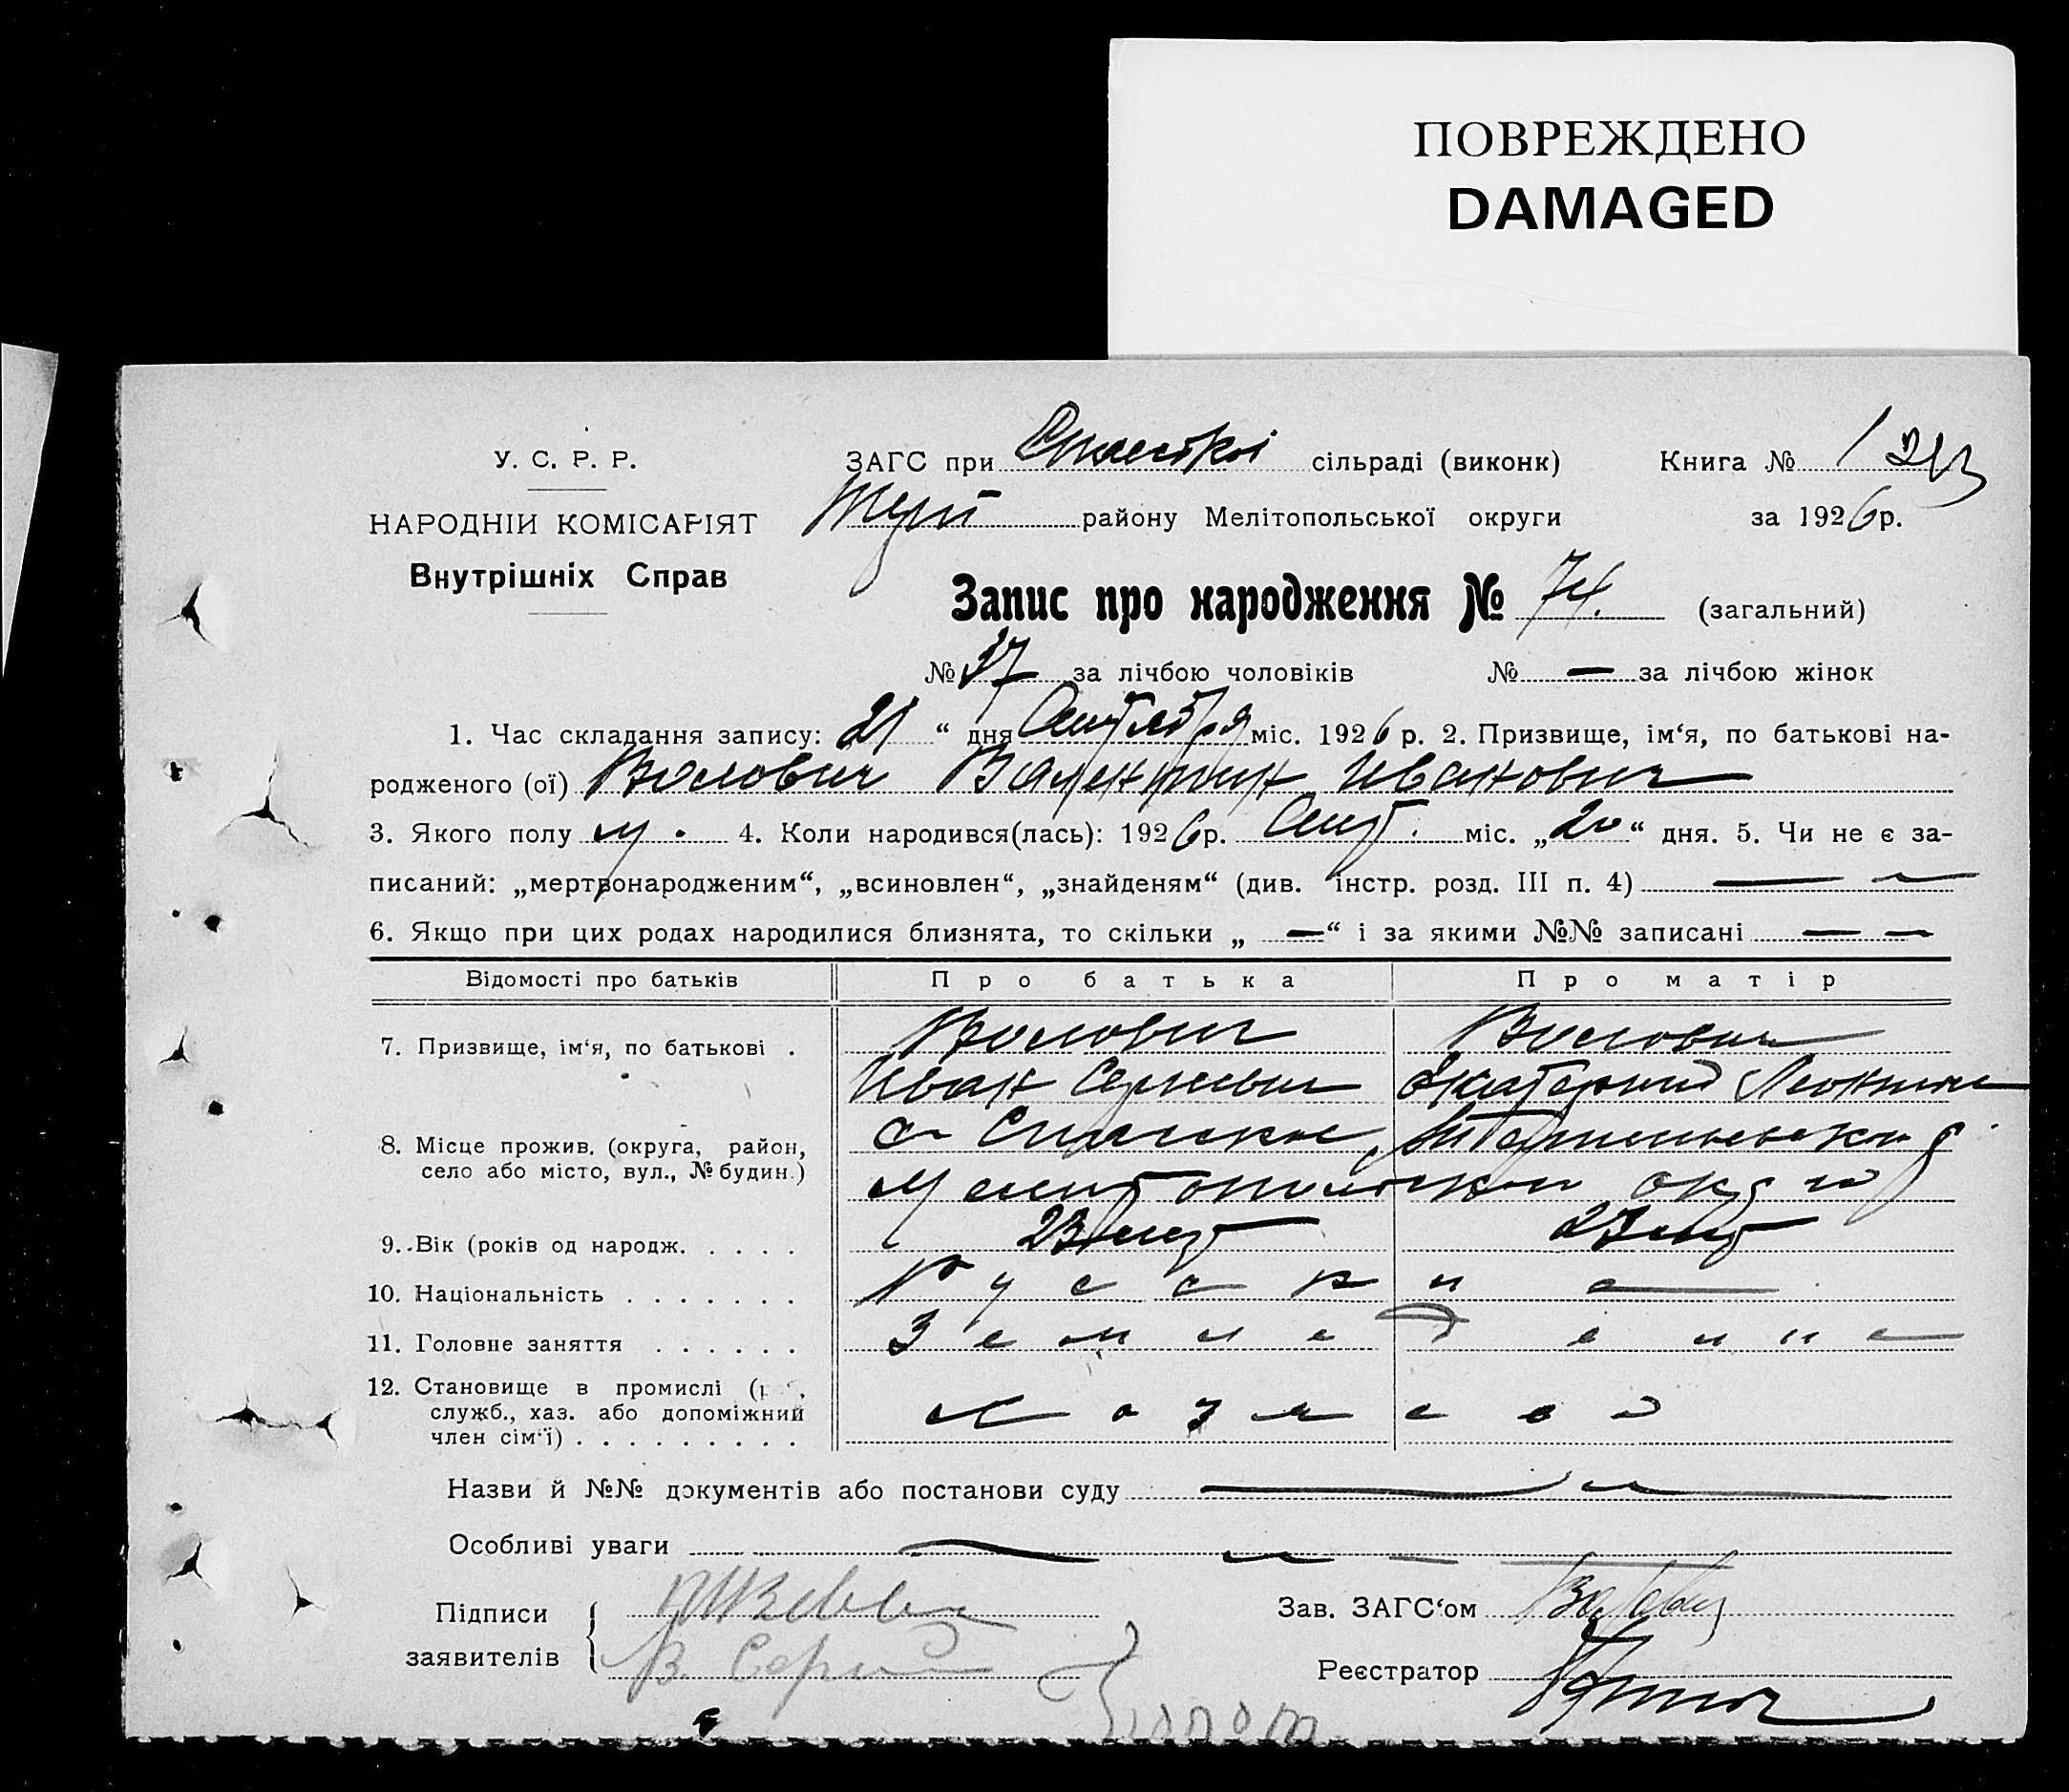 ПОВРЕЖДЕНО
DAMAGED
У. С. Р. Р.
НАРОДНІЙ КОМІСАРІЯТ
Внутрішніх Справ
ЗАГС при Спаській сільраді (виконк) Книга №
району Мелітопольської округи за 1926р.
Запис про народження № 74. (загальний)
№ 37 за лічбою чоловіків № — за лічбою жінок
1. Час складання запису: 21 “ дня Сентября міс. 1926 р. 2. Призвище, ім‘я, по батькові на-
родженого (ої) Волович Валентин Иванович
3. Якого полу м. 4. Коли народився(лась): 1926р. Сент. міс. „20“ дня. 5. Чи не є за-
писаний: „мертвонародженим“, „всиновлен“, „знайденям“ (див. інстр. розд. III п. 4) —
6. Якщо при цих родах народилися близнята, то скільки „ — “ і за якими №№ записані — —
Відомості про батьків Про батька Про матір
7. Призвище, ім‘я, по батькові . Волович Волович
Иван Сергеевич Екатерина
8. Місце прожив. (округа, район, с. Спаское
село або місто, вул., № будин.) Мелитопольской округ
9. Вік (років од народж. . . . . 23 лет 23 лет
10. Національність . . . . . . . Русские
11. Головне заняття . . . . . . Земледелие
12. Становище в промислі (
служб., хаз. або допоміжний хозяева
член сім‘ї) . . . . . . . . .
Назви й №№ документів або постанови суду —
Особливі уваги —
Підписи
заявителів
Зав. ЗАГС‘ом
Реєстратор